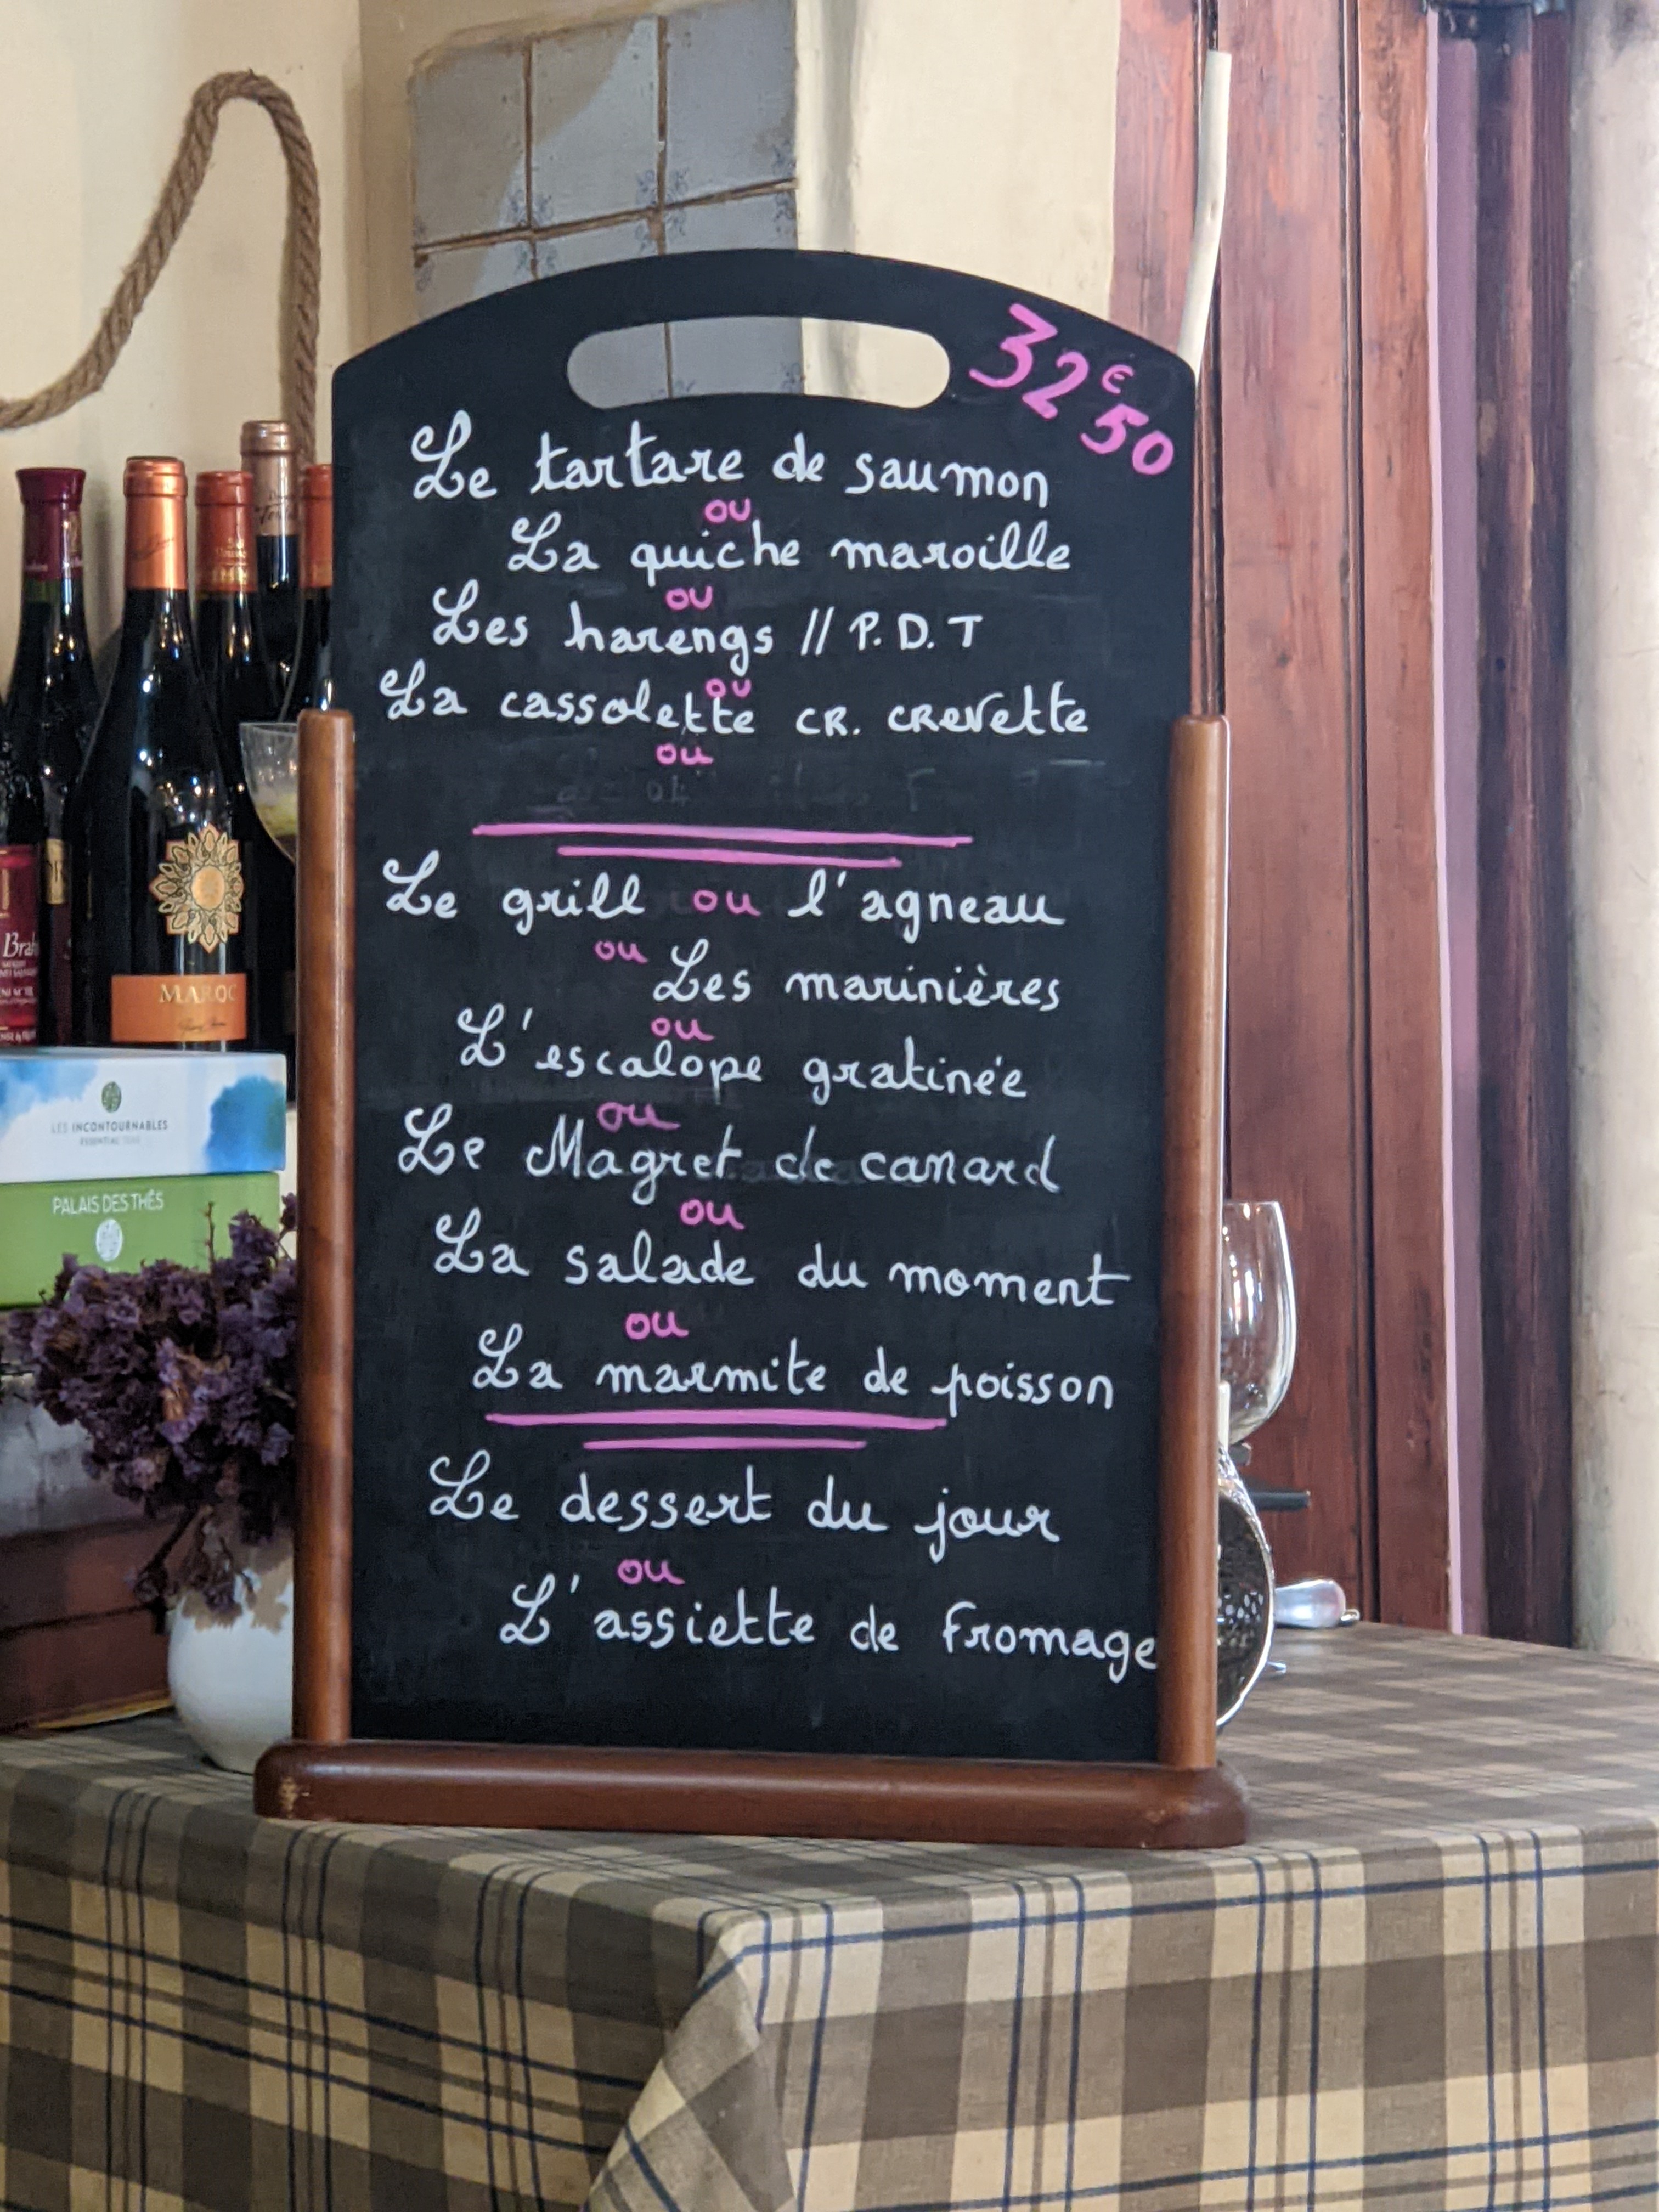 32€50
Le tartare de saumon
ou
La quiche maroille
ou
Les harengs // P.D.T
ou
La cassolette CR. CREVETTE
ou
Le grill ou l'agneau
ou Les marinières
ou
L'escalope gratinée
ou
Le Magret de canard
ou
La salade du moment
ou
La marmite de poisson
Le dessert du jour
ou
L'assiette de fromage
MAROC
LES INCONTOURNABLES
PALAIS DES THÉS